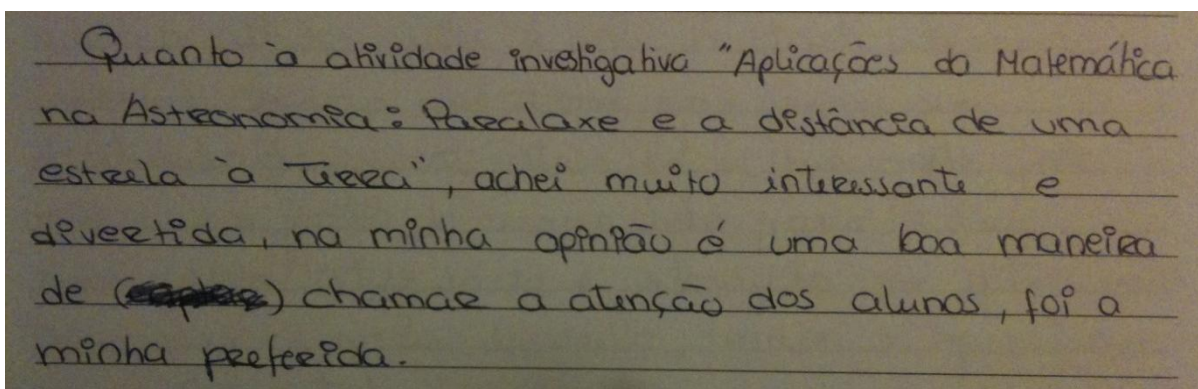 Quanto à atividade investigativa "Aplicações da Matemática
na Astronomia: Paralaxe e a distância de uma
estrela à Terra", achei muito interessante e
divertida, na minha opinião é uma boa maneira
de () chamar a atenção dos alunos, foi a
minha preferida.